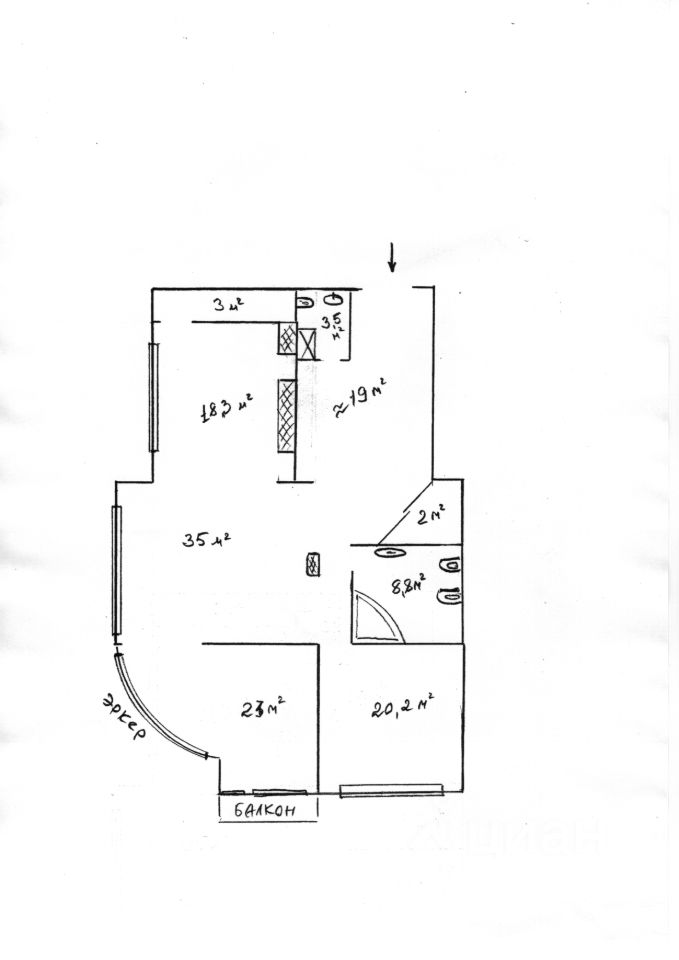 3 м²
3,5 м²
18,3 м²
≈ 19 м²
2 м²
35 м²
8,8 м²
23 м²
20,2 м²
эркер
БАЛКОН
циан